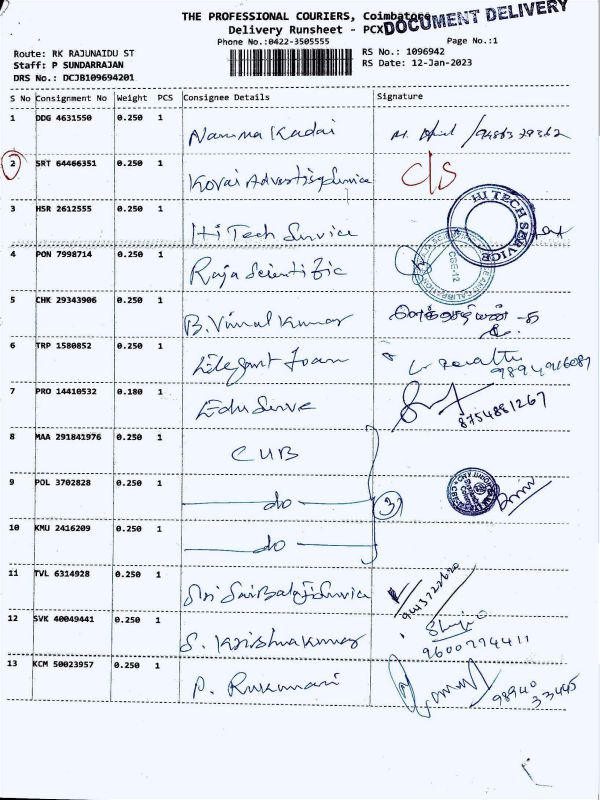 THE PROFESSIONAL COURIERS, Coimbatore
DOCUMENT DELIVERY
Delivery Runsheet - PCX
Phone No.:0422-3505555
Page No.:1
Route: RK RAJUNAIDU ST
RS No.: 1096942
Staff: P SUNDARRAJAN
RS Date: 12-Jan-2023
DRS No.: DCJB109694201
S No Consignment No Weight PCS Consignee Details Signature
1 DDG 4631550 0.250 1 Namma Kadai
2 SRT 64466351 0.250 1 Kovai Advertising Service C/S
3 HSR 2612555 0.250 1 Hi Tech Service HI TECH SERVICE
4 PON 7998714 0.250 1 Raja Scientific CBE-12
5 CHK 29343906 0.250 1 B. Vimal Kumar
6 TRP 1580852 0.250 1 Elegant Foam
7 PRO 14410532 0.180 1 Edu Serve 8754881267
8 MAA 291841976 0.250 1 CUB
9 POL 3702828 0.250 1 do 3
10 KMU 2416209 0.250 1 do
11 TVL 6314928 0.250 1 Sri Sai Balaji Service 9443722620
12 SVK 40049441 0.250 1 S. Krishna Kumar 9600774411
13 KCM 50023957 0.250 1 P. Rukumani 98940 33445